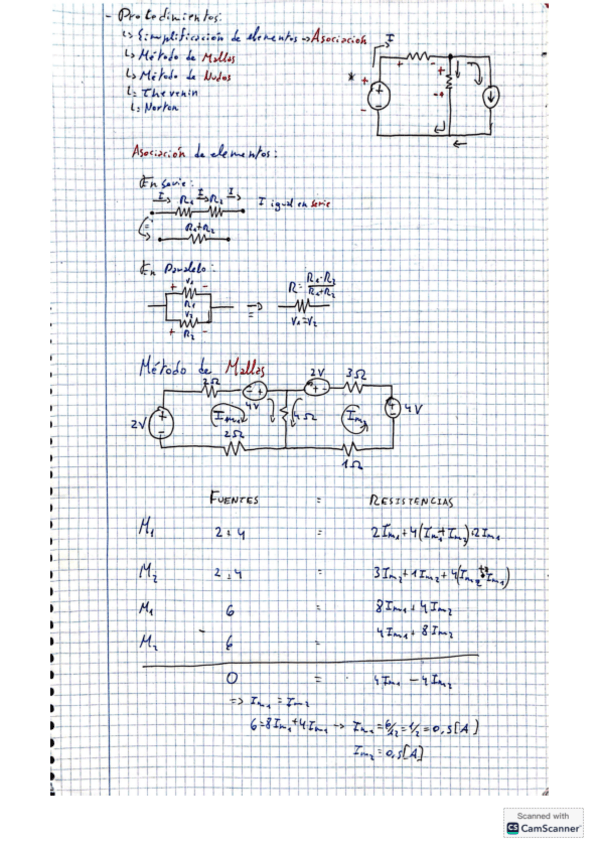 - Procedimientos:
↳ Simplificación de elementos → Asociación
↳ Método de Mallas
↳ Método de Nudos
↳ Thevenin
↳ Norton
I
*
+ -
+
-
Asociación de elementos:
En serie:
I R₁ I R₂ I
I igual en serie
R₁+R₂
En Paralelo:
+ V₁ -
R₁
V₂
+ R₂ -
=>
R = R₁·R₂ / R₁+R₂
V₁=V₂
Método de Mallas
2Ω 4V 2V 3Ω
2V Im₁ 4Ω Im₂ 4V
2Ω 1Ω
FUENTES = RESISTENCIAS
M₁ 2+4 = 2Im₁+4(Im₁+Im₂)+2Im₁
M₂ 2+4 = 3Im₂+1Im₂+4(Im₂+Im₁)
M₁ 6 = 8Im₁+4Im₂
M₂ 6 = 4Im₁+8Im₂
0 = 4Im₁-4Im₂
=> Im₁=Im₂
6=8Im₁+4Im₁ → Im₁=6/12=1/2=0,5[A]
Im₂=0,5[A]
Scanned with
CS CamScanner